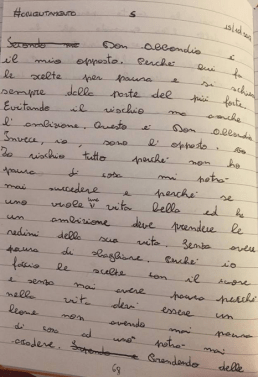 #CINQUANTANOVE 5
Secondo me Don Abbondio è
il mio opposto. Perché lui fa
le scelte per paura e si schiera
sempre dalla parte del più forte.
Evitando il rischio ma anche
l'ambizione. Questo è Don Abbondio
Invece, io, sono l'opposto.
Io rischio tutto perché non ho
paura di cosa mi potrà
mai succedere e perché se
uno vuole una vita bella ed ha
un ambizione deve prendere le
redini della sua vita. Senza avere
paura di sbagliare. Perché io
faccio le scelte con il cuore
e senza mai avere paura perché
nella vita devi essere un
leone non avendo mai paura
di cosa ed uno potrà mai
accadere. Prendendo delle
68